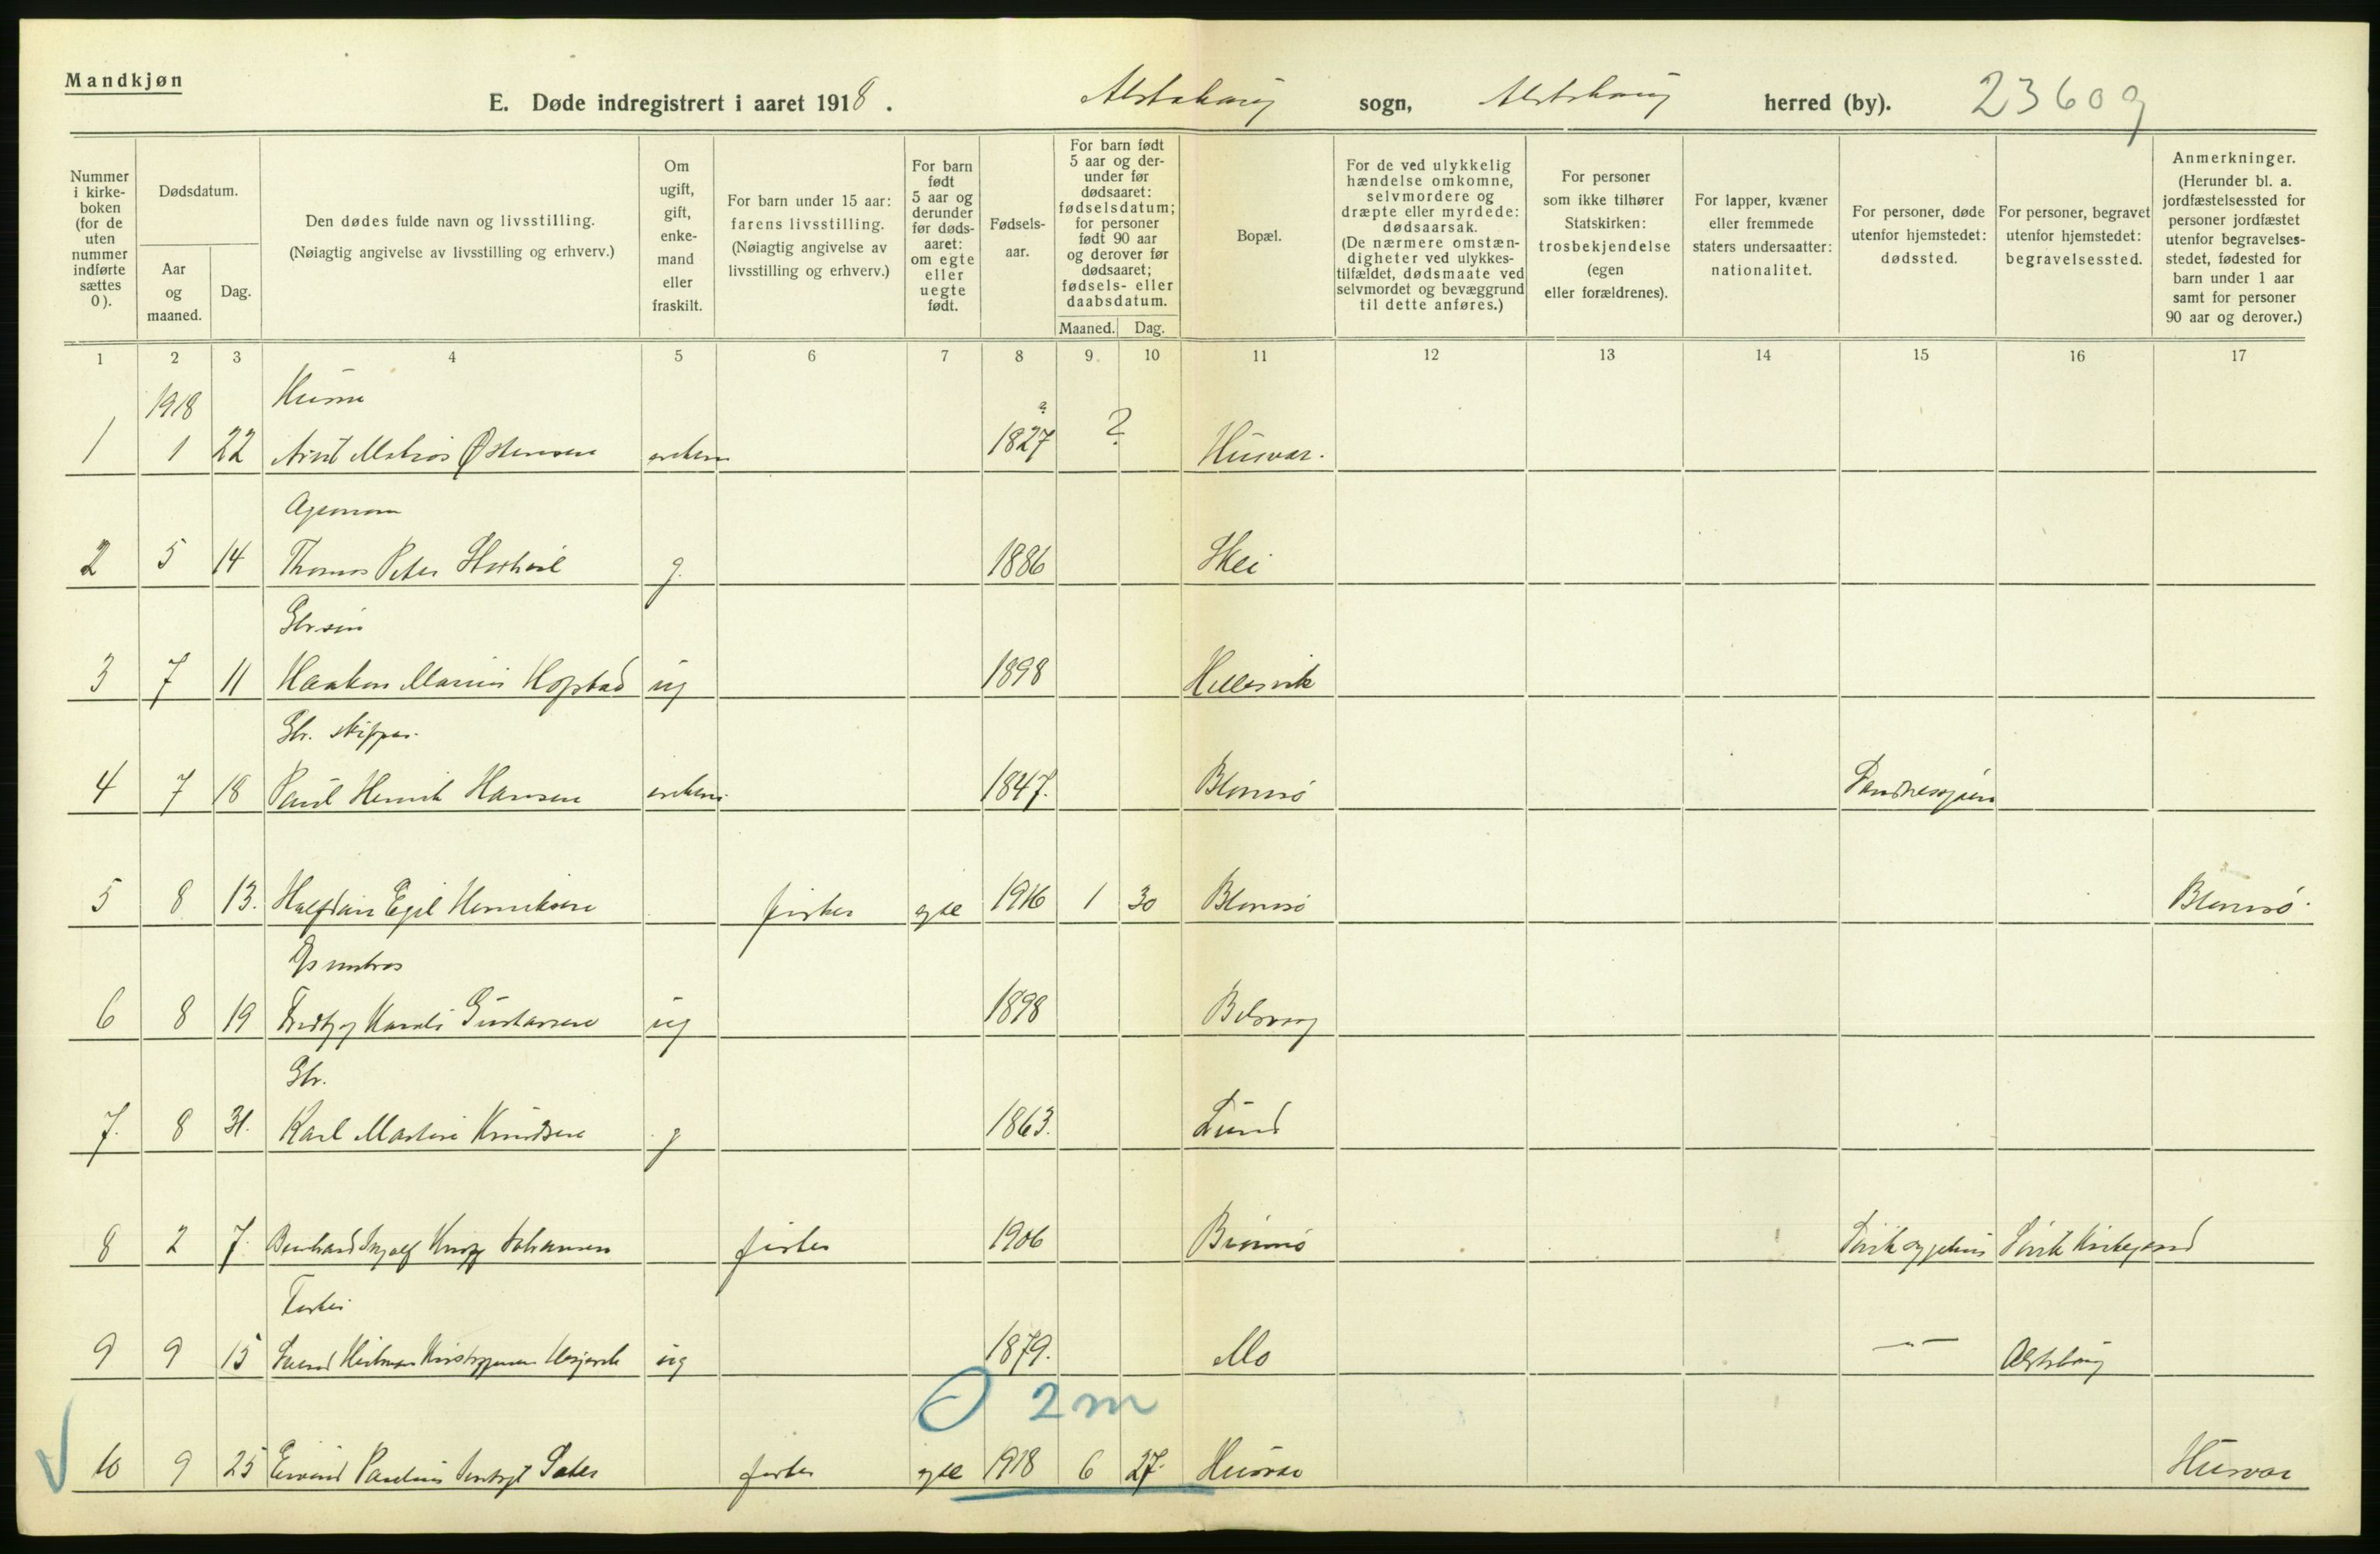 Mandkjøn
E. Døde indregistrert i aaret 1918. Alstahaug sogn, Alstahaug herred (by). 23609
Nummer i kirkeboken (for de uten nummer indførte sættes 0).
Dødsdatum.
Aar og maaned.
Dag.
Den dødes fulde navn og livsstilling.
(Nøiagtig angivelse av livsstilling og erhverv.)
Om ugift, gift, enkemand eller fraskilt.
For barn under 15 aar: farens livsstilling. (Nøiagtig angivelse av livsstilling og erhverv.)
For barn født 5 aar og derunder før dødsaaret: om egte eller uegte født.
Fødselsaar.
For barn født 5 aar og derunder før dødsaaret: fødselsdatum; for personer født 90 aar og derover før dødsaaret; fødsels- eller daabsdatum.
Maaned. Dag.
Bopæl.
For de ved ulykkelig hændelse omkomne, selvmordere og dræpte eller myrdede: dødsaarsak. (De nærmere omstændigheter ved ulykkestilfældet, dødsmaate ved selvmordet og bevæggrund til dette anføres.)
For personer som ikke tilhører Statskirken: trosbekjendelse (egen eller forældrenes).
For lapper, kvæner eller fremmede staters undersaatter: nationalitet.
For personer, døde utenfor hjemstedet: dødssted.
For personer, begravet utenfor hjemstedet: begravelsessted.
Anmerkninger. (Herunder bl. a. jordfæstelsessted for personer jordfæstet utenfor begravelsesstedet, fødested for barn under 1 aar samt for personer 90 aar og derover.)
1 2 3 4 5 6 7 8 9. 10 11 12 13 14 15 16 17
1918
1 1 22 Østensen 1827 ? ? Husvær.
2 5 14 Thomas Peter g. 1886 Skei
Gbr.søn
3 7 11 Haakon Marius Hopstad ug 1898 Hellesvik
Gbr. skipper.
4 7 18 Paul Henrik Hansen 1847. Blomsö Sandnessjøen
5 8 13. Halfdan Egil Henriksen fisker egte 1916 1 30 Blomsö Blomsö.
6 8 19 Gustavsen ug 1898
Gbr.
7. 8 31. Karl Martin Knudsen g 1863. Lund
8 2 7. Johansen fisker 1906 Sövik sygehus Sövik Kirkegaard
Fisker
9 9 15 ug 1879. Mo — " — Alstahaug
2 m
10 9 25 Eivind Paulius fisker egte 1918 6 27. Husvær Husvær